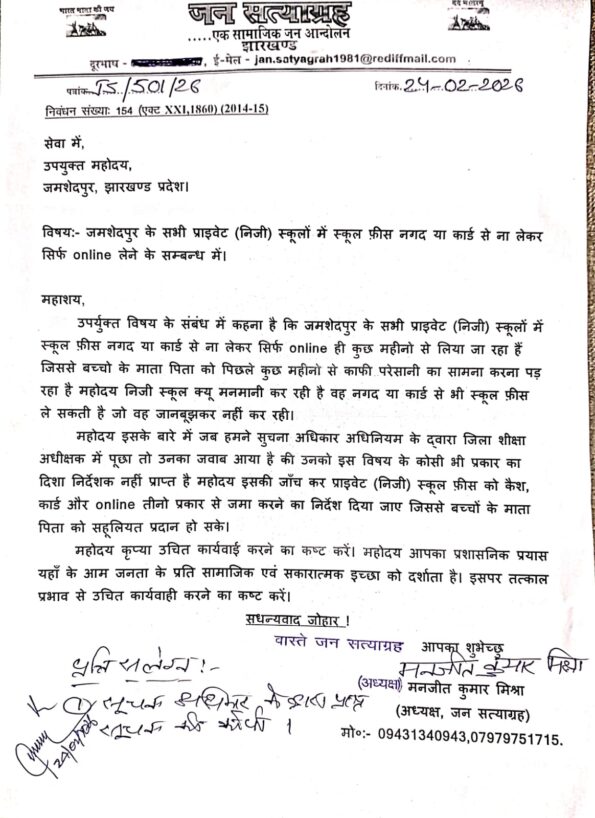 भारत माता की जय
वंदे मातरम्
जन सत्याग्रह
.....एक सामाजिक जन आन्दोलन
झारखण्ड
दूरभाष - , ई-मेल - jan.satyagrah1981@rediffmail.com
पत्रांक JS/501/26 दिनांक. 24-02-2026
निवंधन संख्याः 154 (एक्ट XXI,1860) (2014-15)
सेवा में,
उपयुक्त महोदय,
जमशेदपुर, झारखण्ड प्रदेश।
विषय:- जमशेदपुर के सभी प्राइवेट (निजी) स्कूलों में स्कूल फ़ीस नगद या कार्ड से ना लेकर
सिर्फ online लेने के सम्बन्ध में।
महाशय,
उपर्युक्त विषय के संबंध में कहना है कि जमशेदपुर के सभी प्राइवेट (निजी) स्कूलों में
स्कूल फ़ीस नगद या कार्ड से ना लेकर सिर्फ online ही कुछ महीनो से लिया जा रहा हैं
जिससे बच्चो के माता पिता को पिछले कुछ महीनो से काफी परेसानी का सामना करना पड़
रहा है महोदय निजी स्कूल क्यू मनमानी कर रही है वह नगद या कार्ड से भी स्कूल फ़ीस
ले सकती है जो वह जानबूझकर नहीं कर रही।
महोदय इसके बारे में जब हमने सुचना अधिकार अधिनियम के द्वारा जिला शीक्षा
अधीक्षक में पूछा तो उनका जवाब आया है की उनको इस विषय के कोसी भी प्रकार का
दिशा निर्देशक नहीं प्राप्त है महोदय इसकी जाँच कर प्राइवेट (निजी) स्कूल फ़ीस को कैश,
कार्ड और online तीनो प्रकार से जमा करने का निर्देश दिया जाए जिससे बच्चों के माता
पिता को सहूलियत प्रदान हो सके।
महोदय कृप्या उचित कार्यवाई करने का कष्ट करें। महोदय आपका प्रशासनिक प्रयास
यहाँ के आम जनता के प्रति सामाजिक एवं सकारात्मक इच्छा को दर्शाता है। इसपर तत्काल
प्रभाव से उचित कार्यवाही करने का कष्ट करें।
सधन्यवाद जोहार !
वास्ते जन सत्याग्रह आपका शुभेच्छु
मनजीत कुमार मिश्रा
(अध्यक्ष) मनजीत कुमार मिश्रा
(अध्यक्ष, जन सत्याग्रह)
मो०:- 09431340943,07979751715.
प्रति संलग्न :-
① सूचना अधिकार के द्वारा प्राप्त
सूचना की कॉपी ।